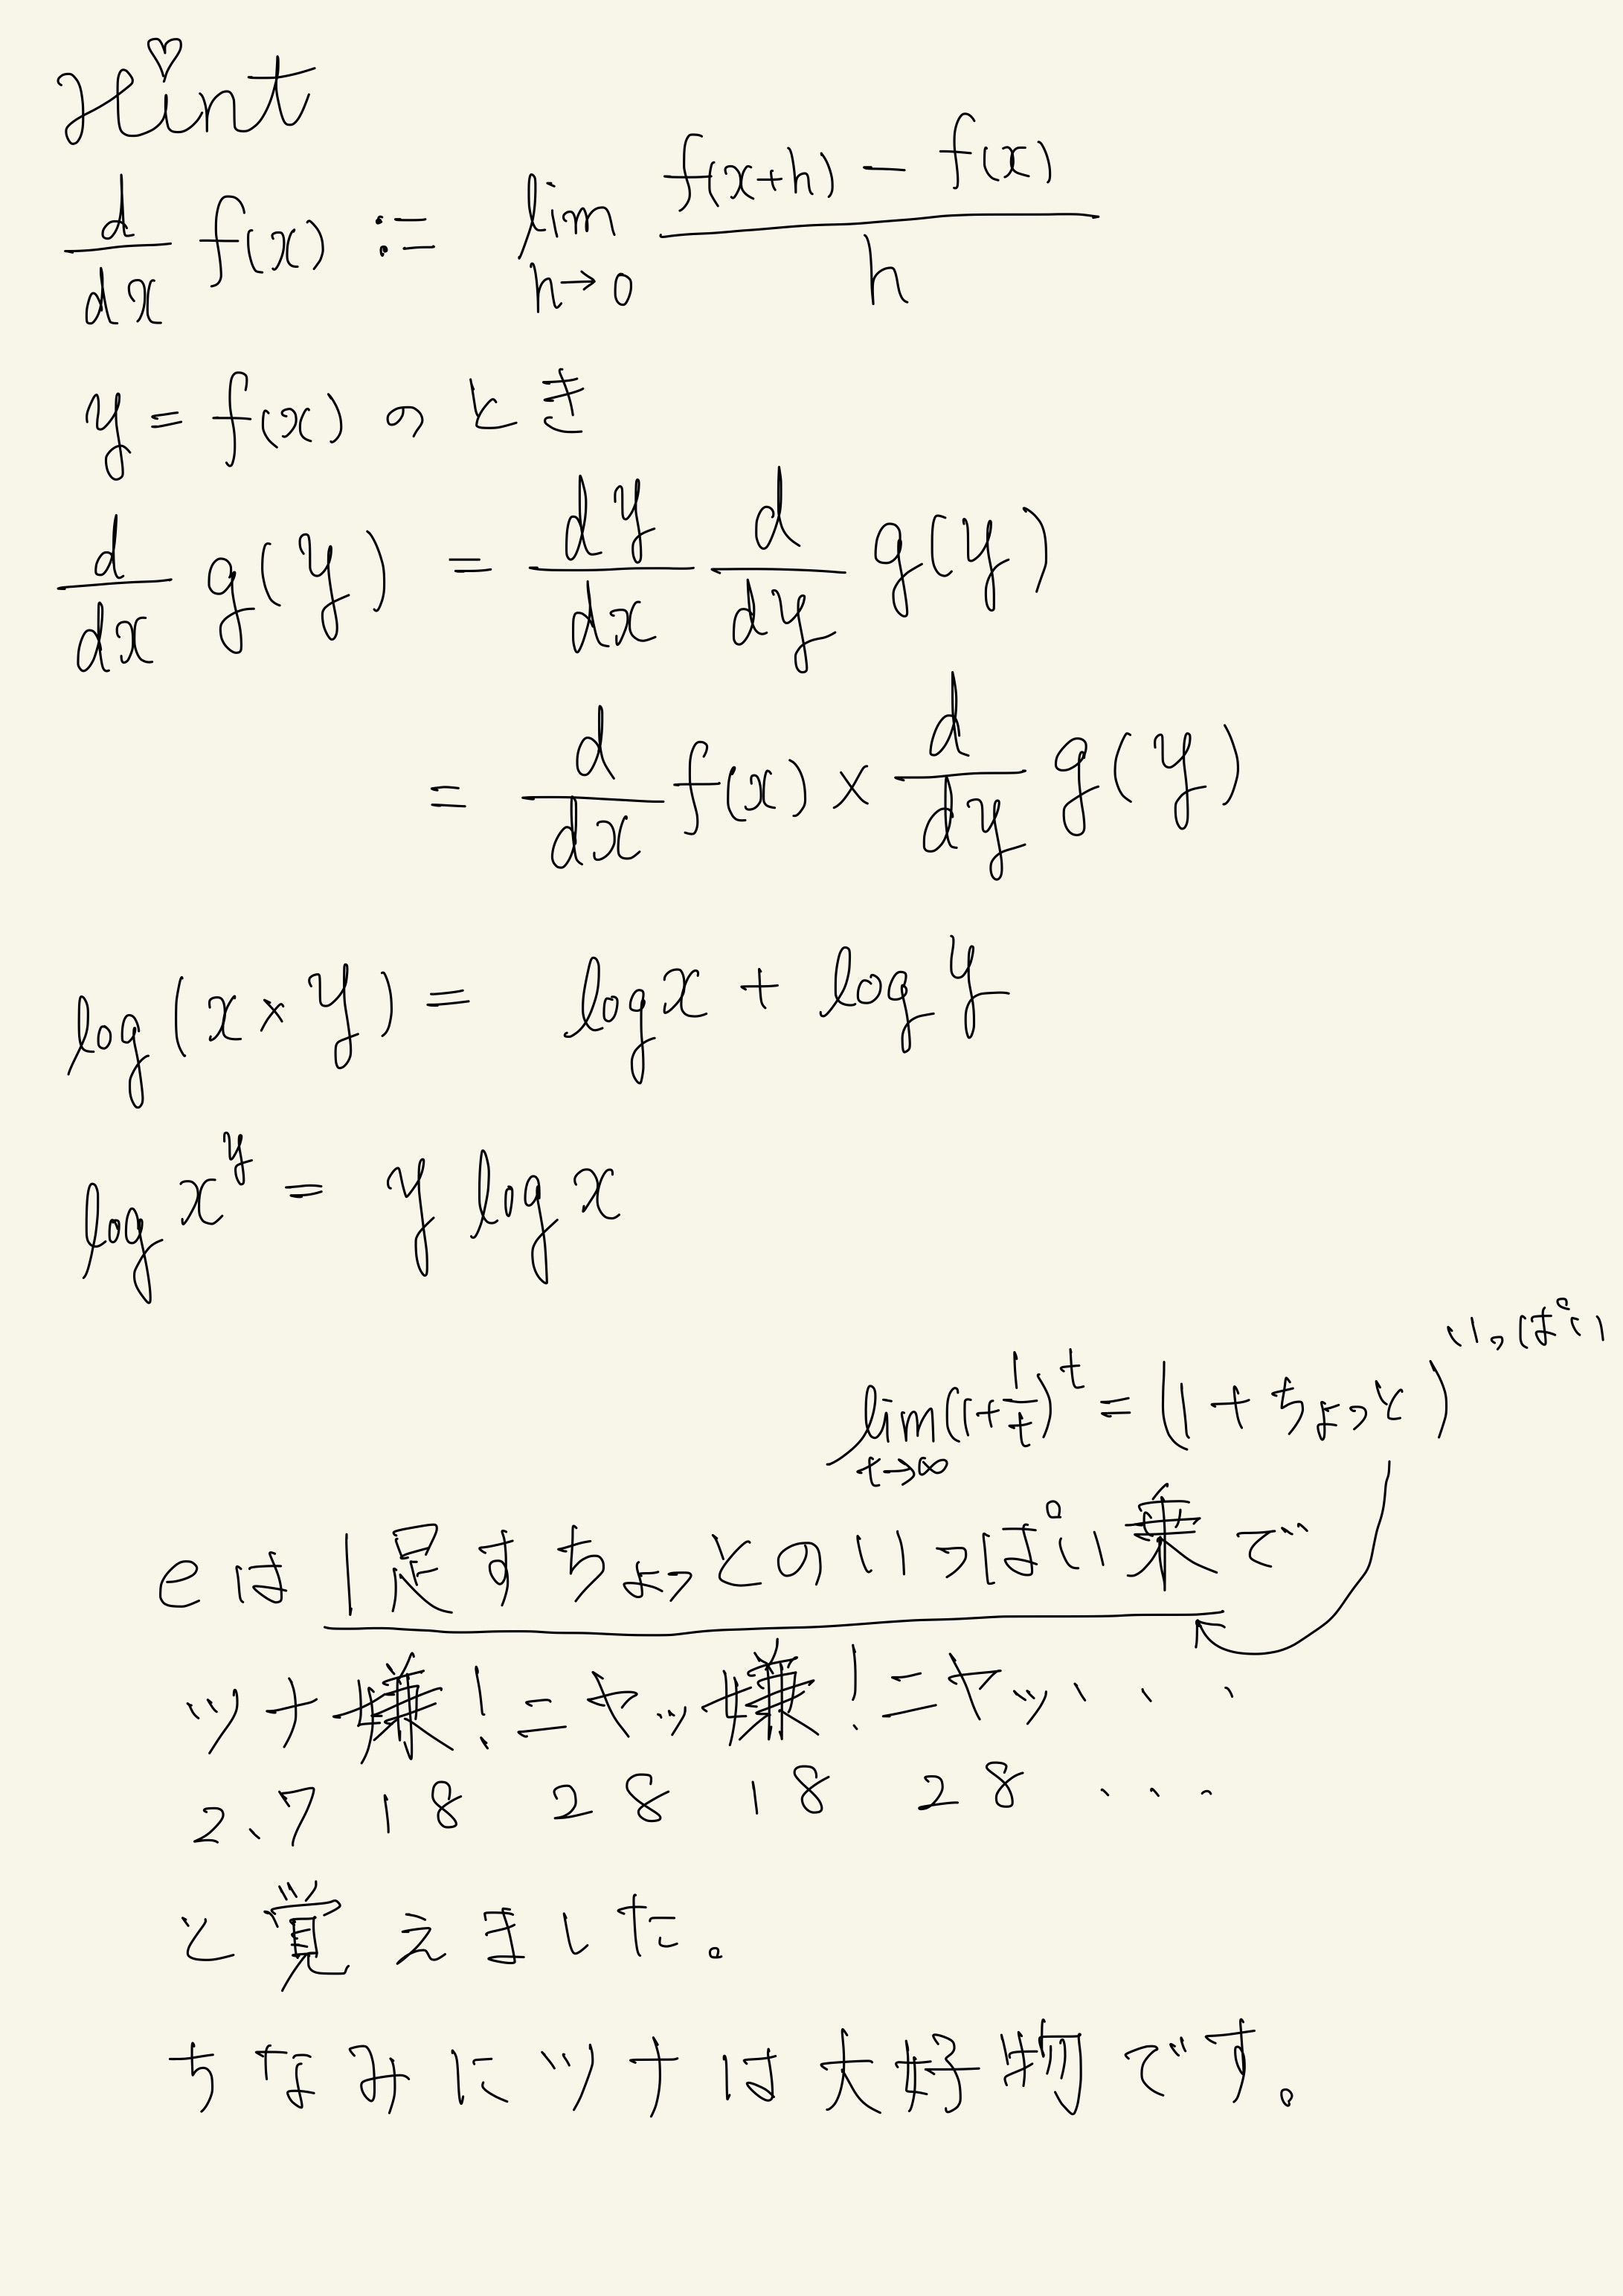 Hint
d/dx f(x) := lim h→0 (f(x+h) − f(x))/h
y = f(x) のとき
d/dx g(y) = dy/dx d/dy g(y)
= d/dx f(x) × d/dy g(y)
log(x × y) = log x + log y
log x^y = y log x
lim t→∞ (1+1/t)^t = (1 + ちょっと)^いっぱい
eは1足すちょっとのいっぱい乗で
ツナ嫌!ニヤッ嫌!ニヤッ、、、
2、7 18 28 18 28 、、、
と覚えました。
ちなみにツナは大好物です。